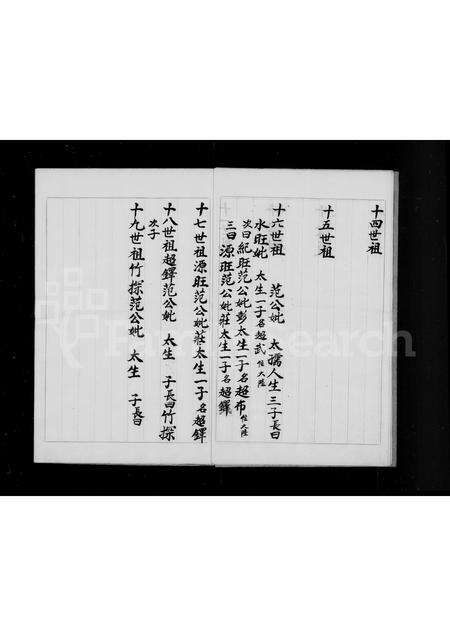 十四世祖
十五世祖
十六世祖 范公妣 太孺人生三子長曰
水旺妣 太生一子名超武住大陸
次曰紀旺范公妣彭太生一子名超布住大陸
三曰源旺范公妣莊太生一子名超鐸
十七世祖源旺范公妣莊太生一子名超鐸
十八世祖超鐸范公妣 太生 子長曰竹探
次子
十九世祖竹探范公妣 太生 子長曰
FamilySearch